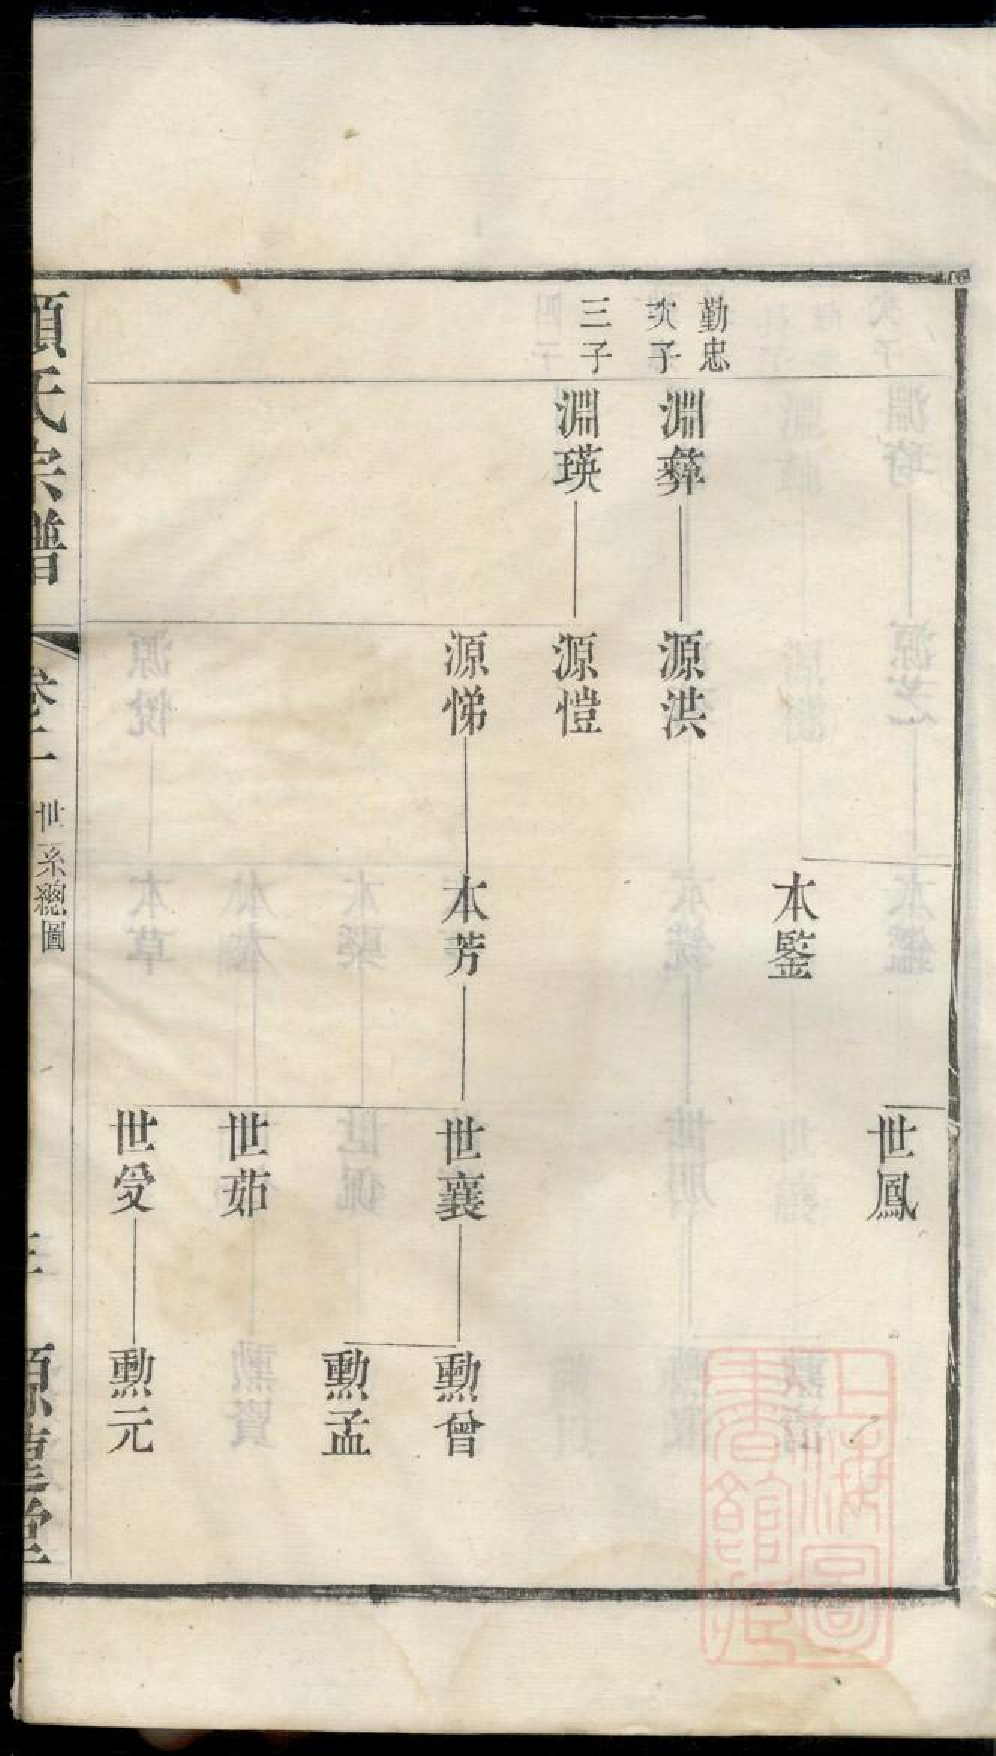 世鳳
本鋻
勤忠
次子
淵彜
源洪
三子
淵瑛
源愷
源悌
本芳
世襄
勲曾
勲孟
世茹
世受
勲元
氏宗譜
世系總圖
上海圖書館藏